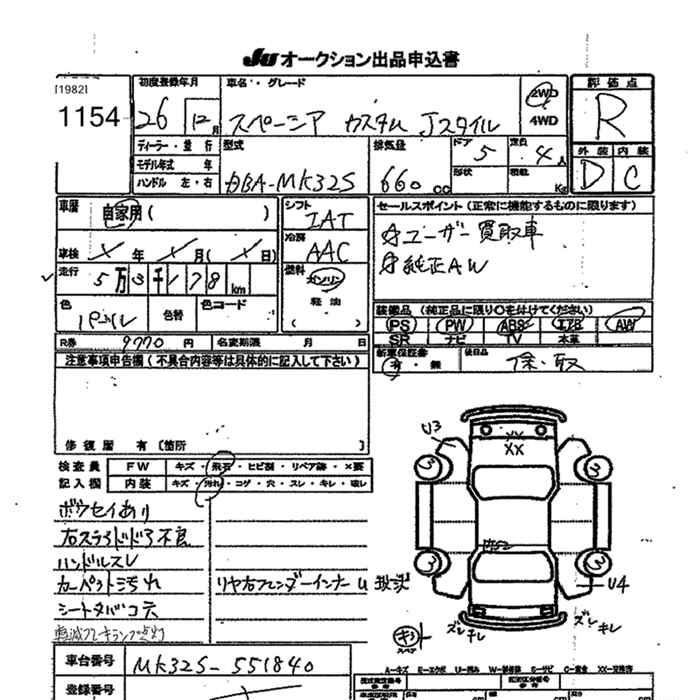 JU オークション出品申込書
[1982]
1154
初度登録年月
26 12 月
車名・グレード
スペーシア カスタム Jスタイル
2WD
4WD
評価点
R
外装 内装
D C
ディーラー・並行
モデル年式 年
ハンドル 左・右
型式
DBA-MK32S
排気量
660 cc
ドア 5
形状
定員 4 人
積載 Kg
車歴 自家用( )
車検 年 月( 日)
走行 5万3千178km
色 パール
色替
色コード
シフト IAT
冷房 AAC
燃料 ガソリン
軽油
( )
セールスポイント(正常に機能するものに限ります)
ユーザー買取車
純正AW
装備品(純正品に限り○を付けてください)
PS PW ABS エアB AW
SR ナビ TV 本革
新車保証書
有・無
後日品
保・取
R券 9770 円
名変期限 月 日
注意事項申告欄(不具合内容等は具体的に記入して下さい)
修復歴 有〔箇所 〕
検査員 FW キズ・飛石・ヒビ割・リペア跡・×要
記入欄 内装 キズ・汚れ・コゲ・穴・スレ・キレ・破レ
ボウセイあり
右スライドドア不良
ハンドルスレ
カーペット汚れ
シートタバコ穴
軽減ブレーキランプ点灯
リヤ右フェンダーインナー
U3
XX
XX
3
3
3
3
U4
ズレ キレ
ズレ キレ
キ
スペア
車台番号 MK32S-551840
登録番号
A-キズ E-エクボ U-凹み W-補修跡 S-サビ C-腐食 XX-交換済